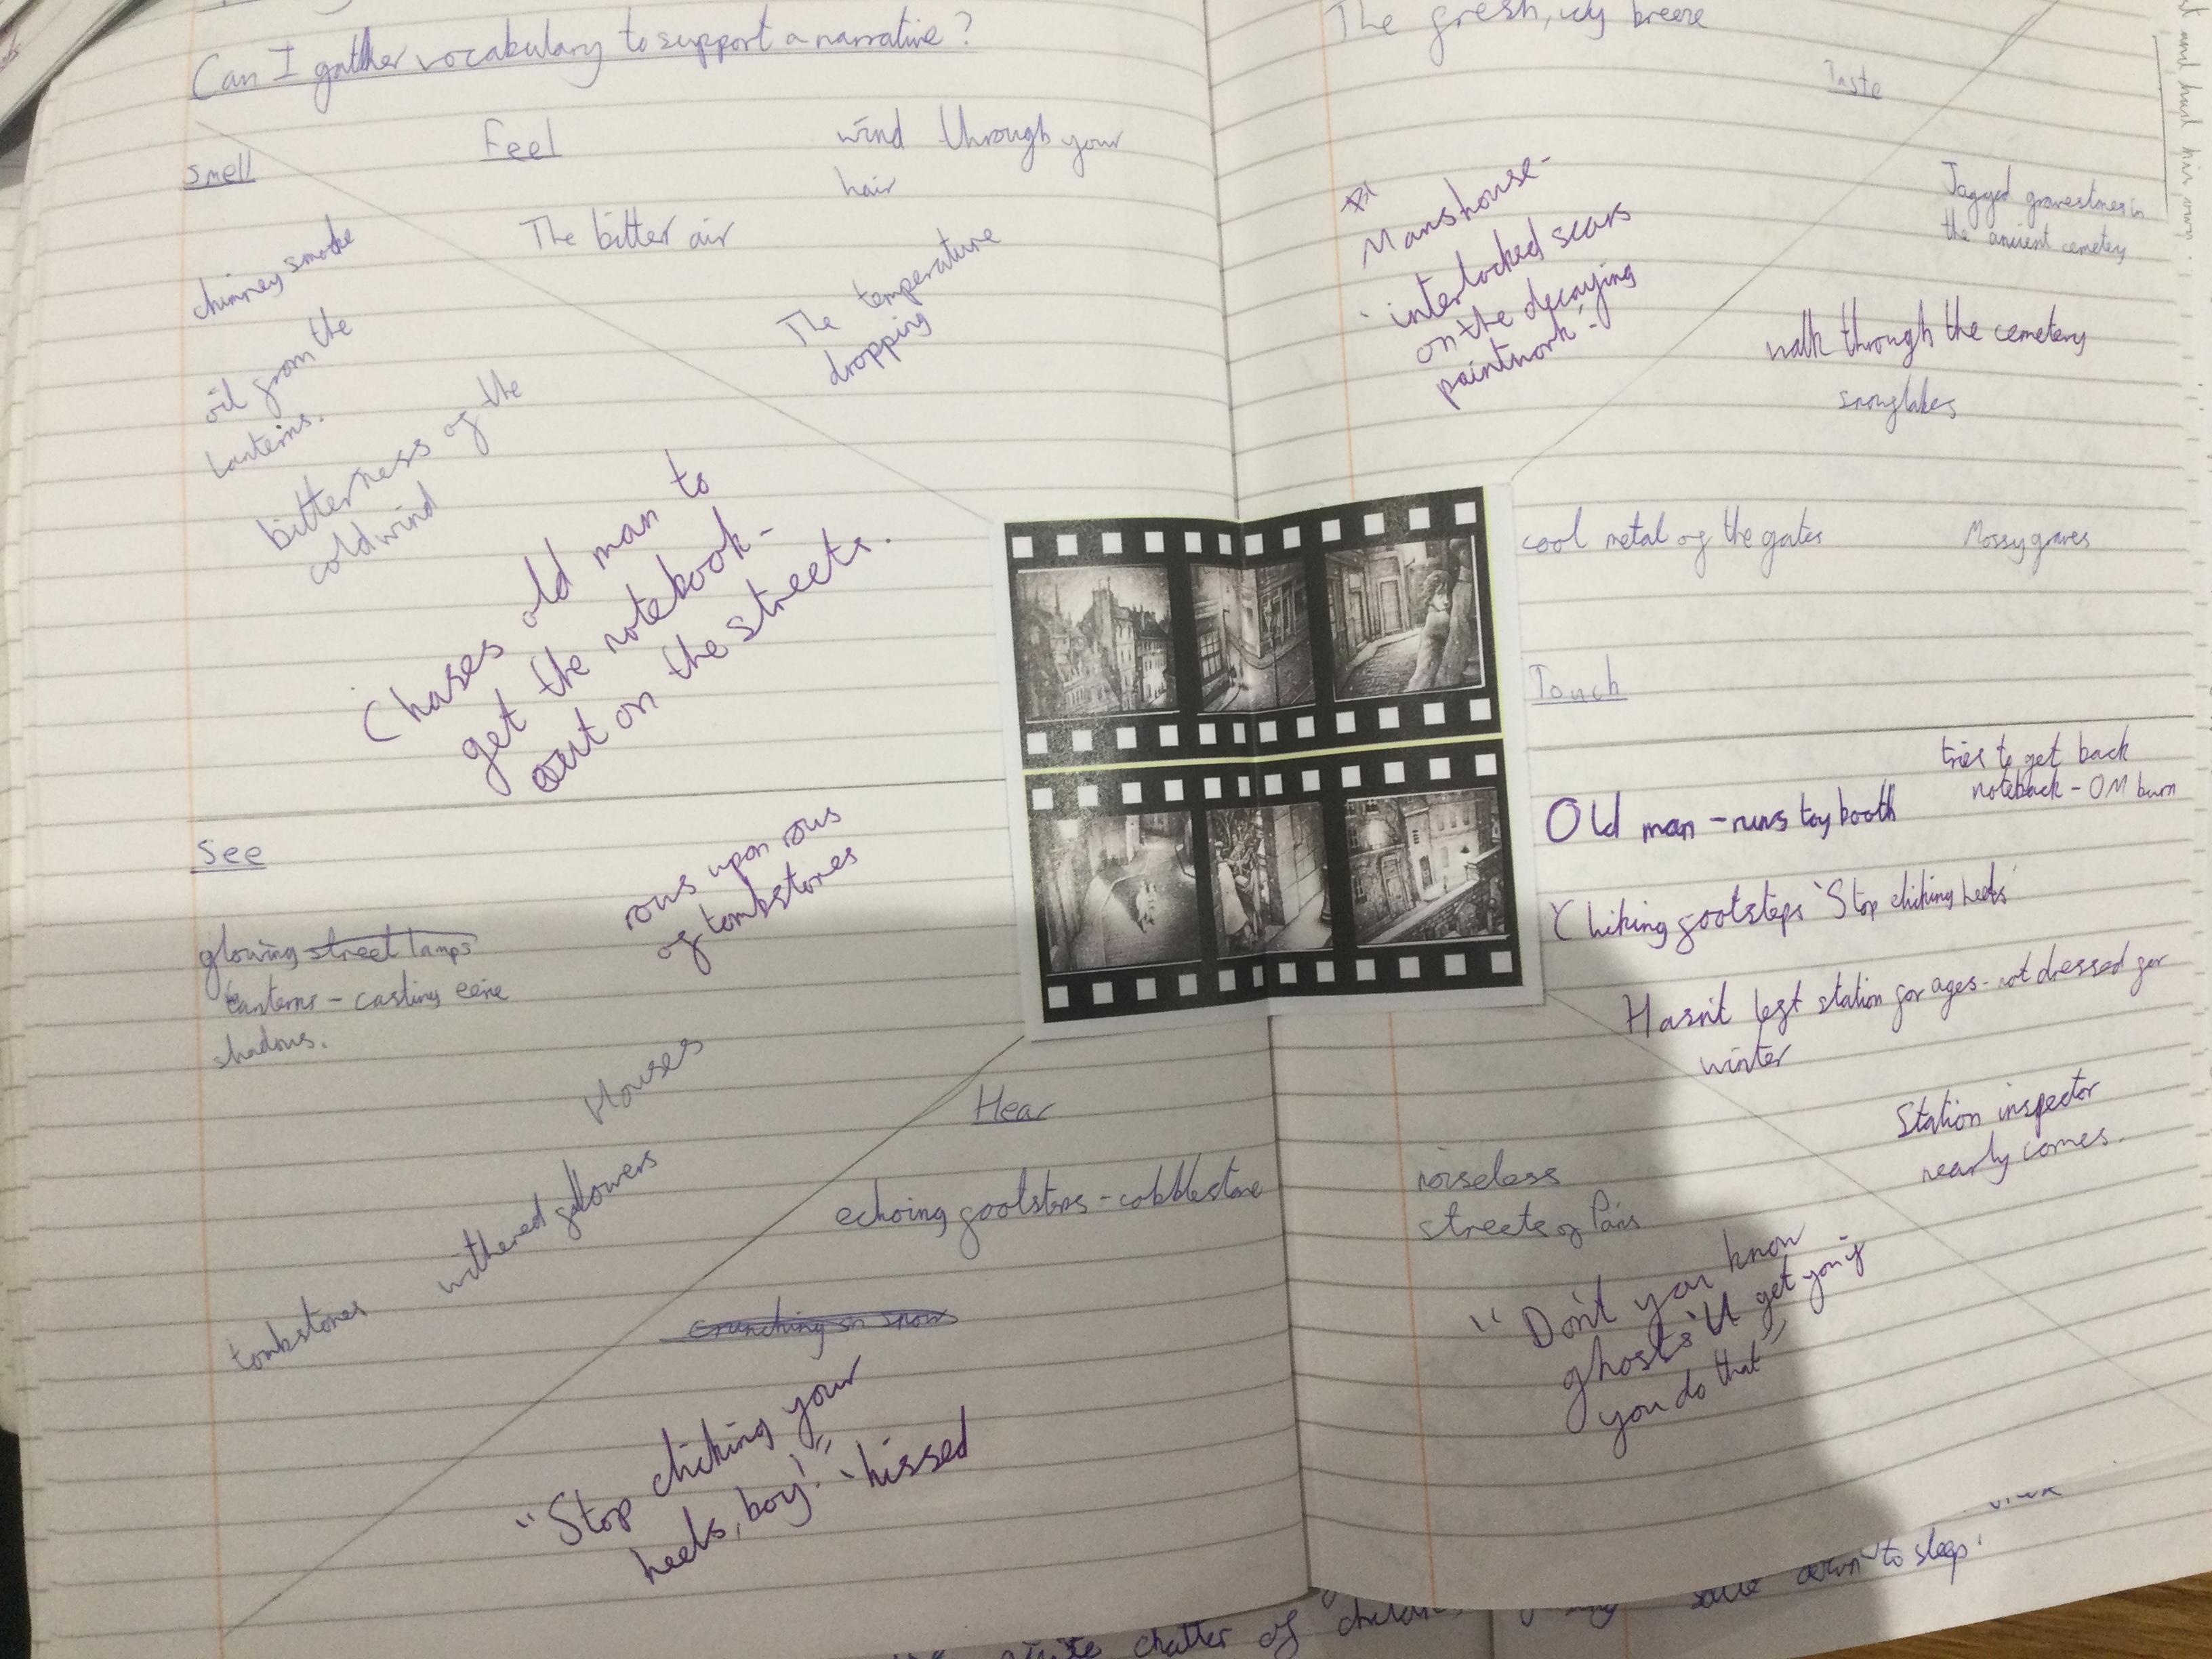 Can I gather vocabulary to support a narrative?
Smell
chimney smoke
oil from the
lanterns.
bitterness of the
cold wind
Feel
The bitter air
wind through your
hair
The temperature
dropping
Chases old man to
get the notebook-
out on the streets.
See
glowing street lamps
lanterns - casting eerie
shadows.
rows upon rows
of tombstones
Houses
withered flowers
tombstones
Hear
echoing footsteps - cobblestone
crunching on snow
"Stop clicking your
heels, boy!" - hissed
The fresh, icy breeze
Taste
Man's house-
'interlocked scars
on the decaying
paintwork'-
Jagged gravestones in
the ancient cemetery
walk through the cemetery
snowflakes
cool metal of the gates
Mossy graves
Touch
tries to get back
noteback - OM burn
Old man - runs toy booth
Clicking footsteps 'Stop clicking heels'
Hasn't left station for ages - not dressed for
winter
Station inspector
nearly comes.
noiseless
streets of Paris
"Don't you know
ghosts'll get you if
you do that"
and had his own
down to sleep.
chatter of